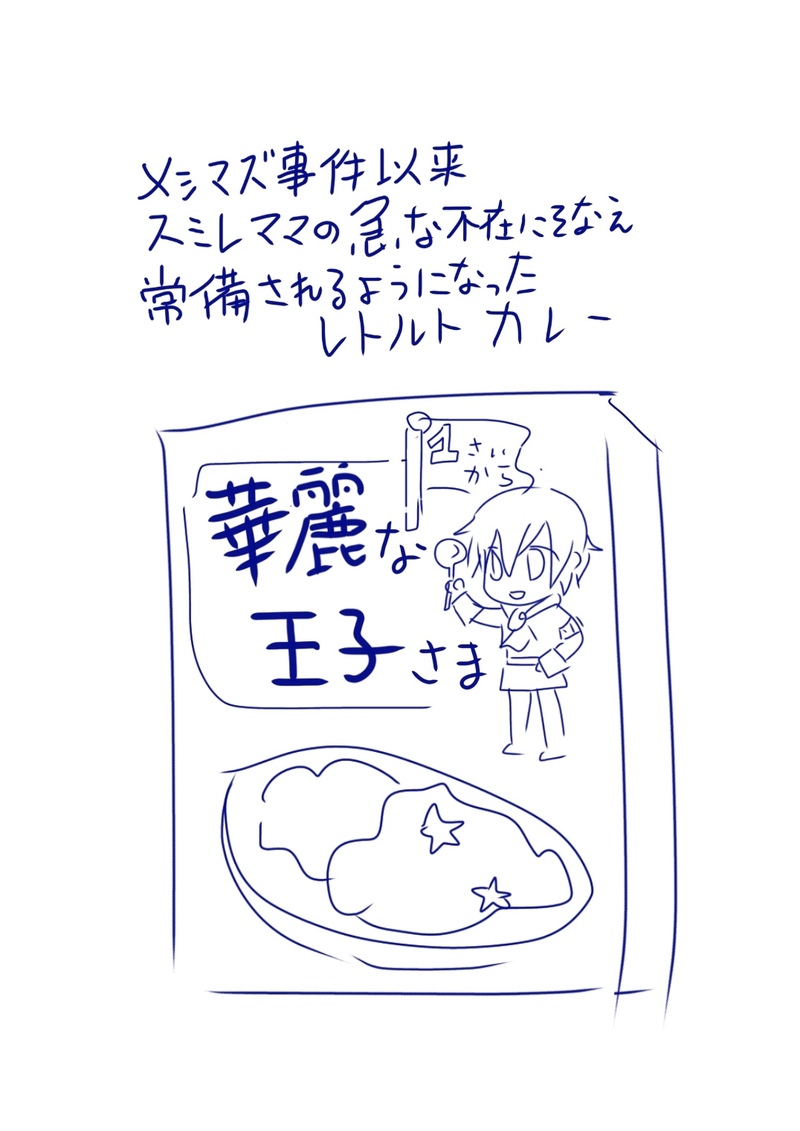 メシマズ事件以来
スミレママの急な不在にそなえ
常備されるようになった
レトルト カレー
1さい
から
華麗な
王子さま